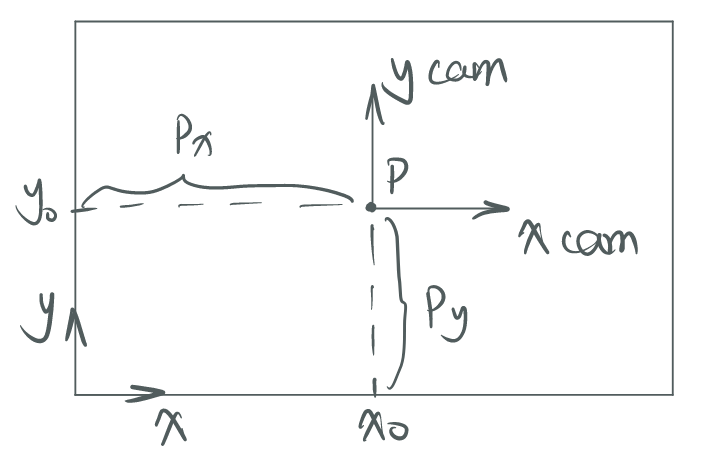 y cam
Px
P
y₀
x cam
y
Py
x
x₀